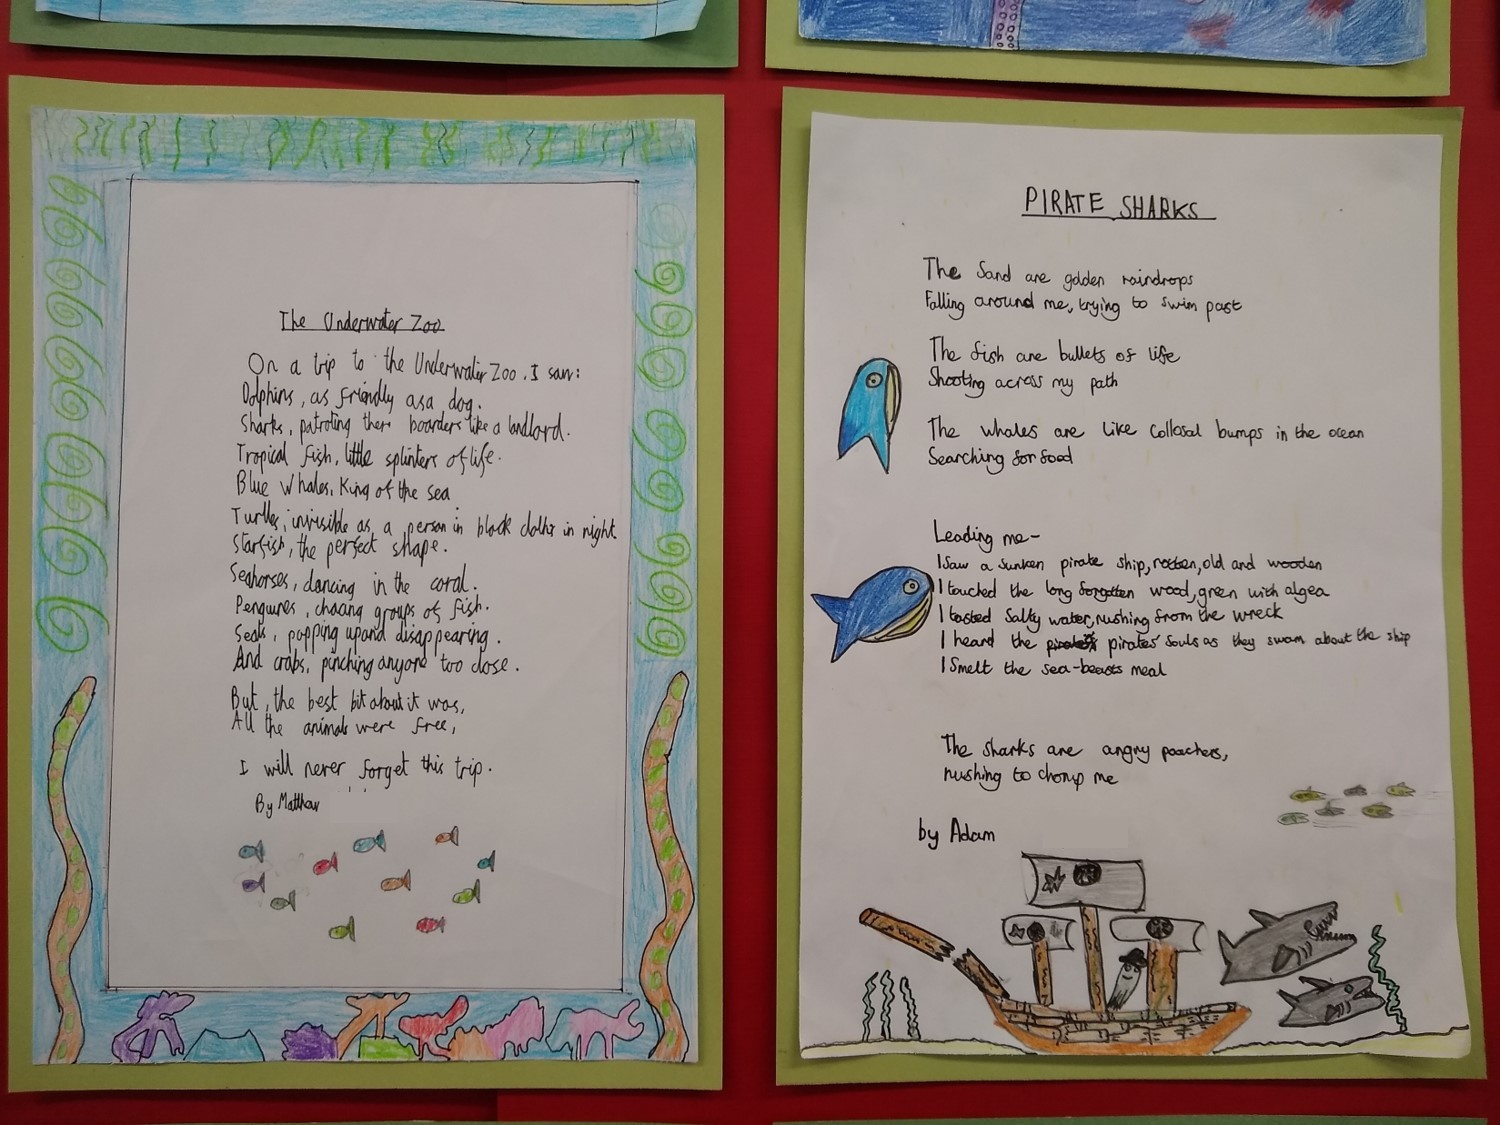 The Underwater Zoo
On a trip to the Underwater Zoo, I saw:
Dolphins, as friendly as a dog.
Sharks, patroling there boarders like a landlord.
Tropical fish, little splinters of life.
Blue Whales, King of the sea
Turtles, invisible as a person in black cloths in night.
Starfish, the perfect shape.
Seahorses, dancing in the coral.
Penguines, chacing groups of fish.
Seals, popping up and disappearing.
And crabs, pinching anyone too close.
But, the best bit about it was,
All the animals were free,
I will never forget this trip.
By Matthew
PIRATE SHARKS
The Sand are golden raindrops
Falling around me, trying to swim past
The fish are bullets of life
Shooting across my path
The whales are like Collosal bumps in the ocean
Searching for food
Leading me-
I Saw a Sunken pirate ship, rotten, old and wooden
I touched the long forgotten wood, gren with algea
I tasted Salty water, rushing from the wreck
I heard the pirates' souls as they swam about the ship
I Smelt the sea-beasts meal
The sharks are angry poachers,
rushing to chomp me
by Adam